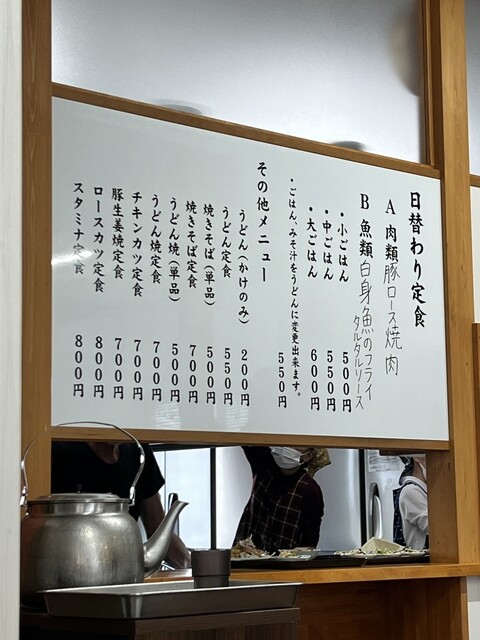 日替わり定食
A 肉類 豚ロース焼肉
B 魚類 白身魚のフライ
タルタルソース
・小ごはん 500円
・中ごはん 550円
・大ごはん 600円
・ごはん、みそ汁をうどんに変更出来ます。
550円
その他メニュー
うどん(かけのみ) 200円
うどん定食 550円
焼きそば(単品) 500円
焼きそば定食 700円
うどん焼(単品) 500円
うどん焼定食 700円
チキンカツ定食 700円
豚生姜焼定食 700円
ロースカツ定食 800円
スタミナ定食 800円